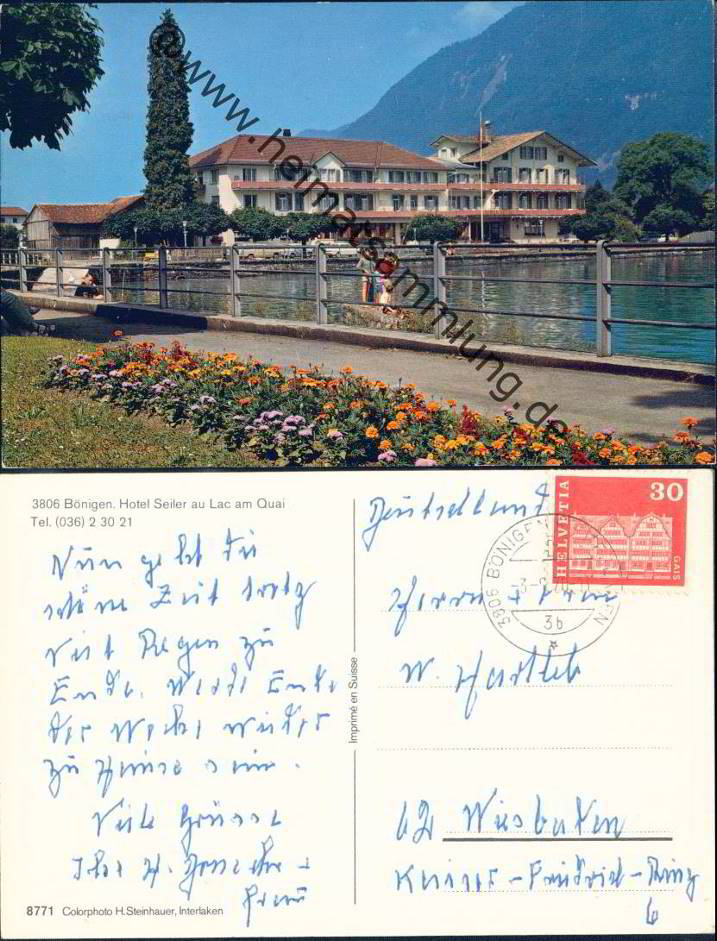 © www.heimatsammlung.de
3806 Bönigen. Hotel Seiler au Lac am Quai
Tel. (036) 2 30 21
Nun geht die
schöne Zeit trotz
viel Regen zu
Ende. Werde Ende
der Woche wieder
zu Hause sein.
Viele Grüsse
Ihr H.
Frau
8771 Colorphoto H. Steinhauer, Interlaken
Imprimé en Suisse
Deutschland
HELVETIA
30
GAIS
3806 BÖNIGEN
3b
Herrn + Frau
W. Hartleb
62 Wiesbaden
Kaiser-Friedrich-Ring
6